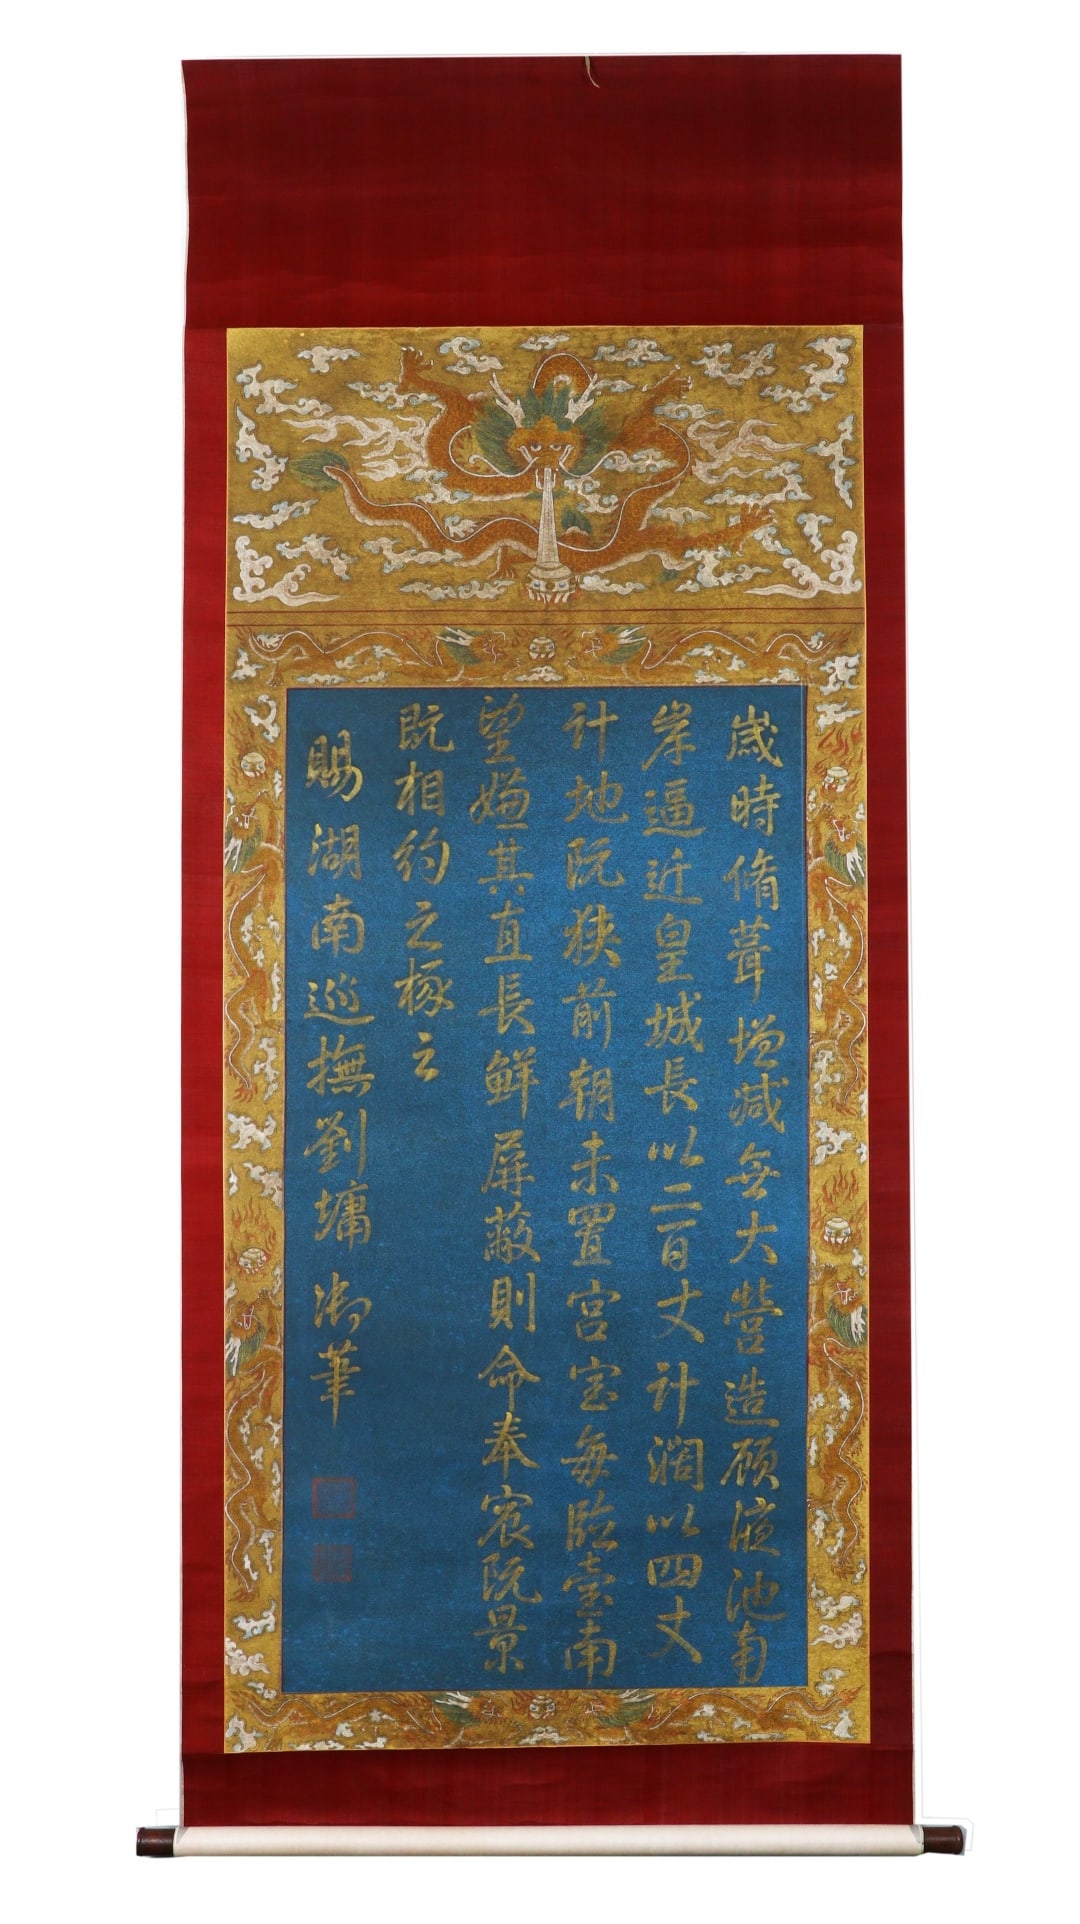 歲時脩葺增減無大營造顾液池南
岸逼近皇城長以二百丈计濶以四丈
计地阮狹前朝未置宫室每臨臺南
望嫌其直長鲜屏蔽則命奉宸阮景
既相約之椓之
賜湖南巡撫劉墉 御筆